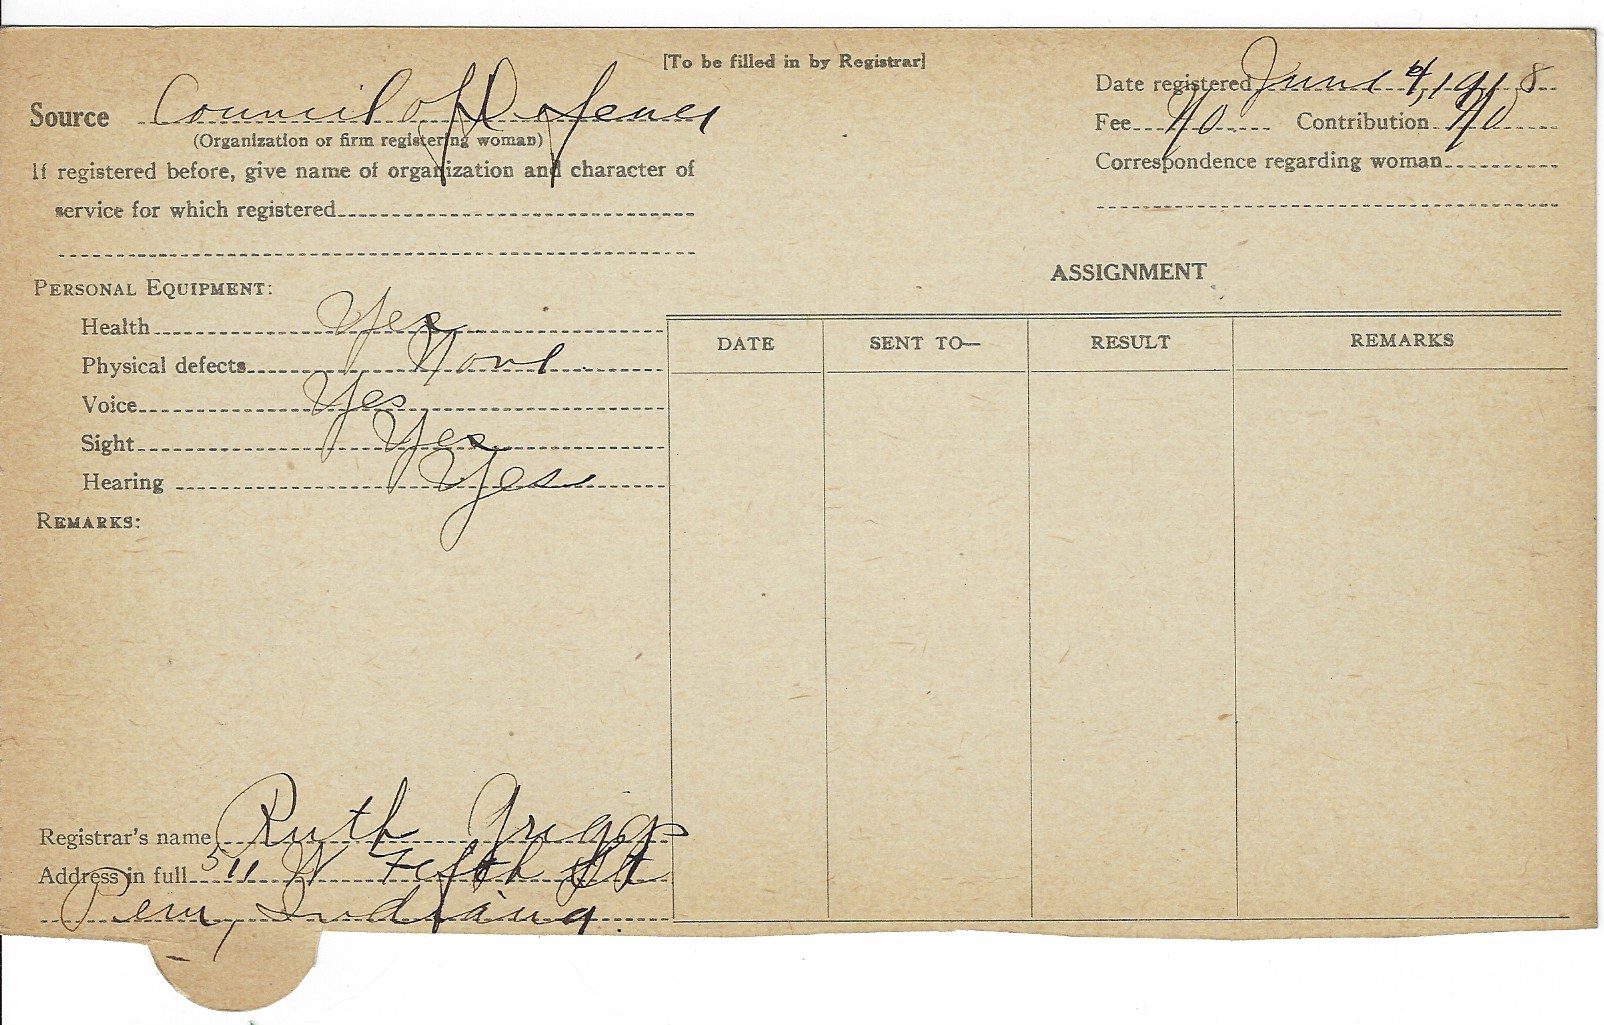 [To be filled in by Registrar]
Source Council of Defence
(Organization or firm registering woman)
If registered before, give name of organization and character of
service for which registered
Date registered June 4, 1918
Fee No Contribution No
Correspondence regarding woman
PERSONAL EQUIPMENT:
Health Yes
Physical defects None
Voice Yes
Sight Yes
Hearing Yes
REMARKS:
ASSIGNMENT
DATE SENT TO— RESULT REMARKS
Registrar's name Ruth Griggs
Address in full 511 W Fifth St
Peru, Indiana.